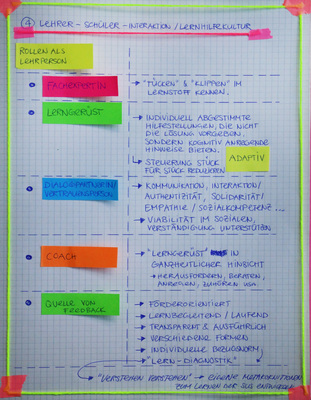 7 LEHRER-SCHÜLER-INTERAKTION/LERNHILFEKULTUR
ROLLEN ALS
LEHRPERSON
FACHEXPERTIN
→ "TÜCKEN" & "KLIPPEN" IM
LERNSTOFF KENNEN.
LERNGERÜST
→ INDIVIDUELL ABGESTIMMTE
HILFESTELLUNGEN, DIE NICHT
DIE LÖSUNG VORGEBEN,
SONDERN KOGNITIV ANREGENDE
HINWEISE BIETEN.
→ STEUERUNG STÜCK
FÜR STÜCK REDUZIEREN
ADAPTIV
DIALOGPARTNER/IN/
VERTRAUENSPERSON
→ KOMMUNIKATION, INTERAKTION/
AUTHENTIZITÄT, SOLIDARITÄT/
EMPATHIE/SOZIALKOMPETENZ...
→ VIABILITÄT IM SOZIALEN,
VERSTÄNDIGUNG UNTERSTÜTZEN
COACH
→ "LERNGERÜST" IN
GANZHEITLICHER HINSICHT
→ HERAUSFORDERN, BERATEN,
ANREGEN, ZUHÖREN USW.
QUELLE VON
FEEDBACK
→ FÖRDERORIENTIERT
→ LERNBEGLEITEND/LAUFEND
→ TRANSPARENT & AUSFÜHRLICH
→ VERSCHIEDENE FORMEN
→ INDIVIDUELLE BEZUGSNORM
→ "LERN-DIAGNOSTIK"
→ "VERSTEHEN VERSTEHEN" → EIGENE
ZUM LERNEN DER SUS ENTWICKELN